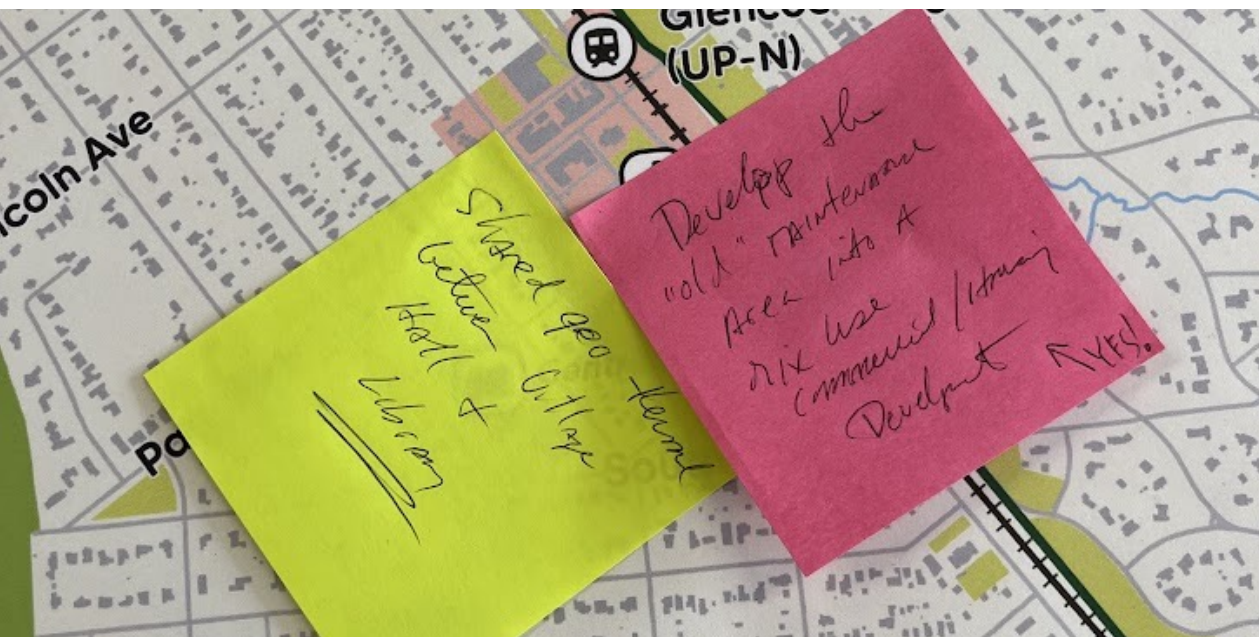 Glencoe
(UP-N)
coln Ave
Pa
Shared geo thermal
between Village
Hall +
Library
Develop the
"old" Maintenance
Area into A
mix use
commercial/Housing
Development ↖ YES!
Sou